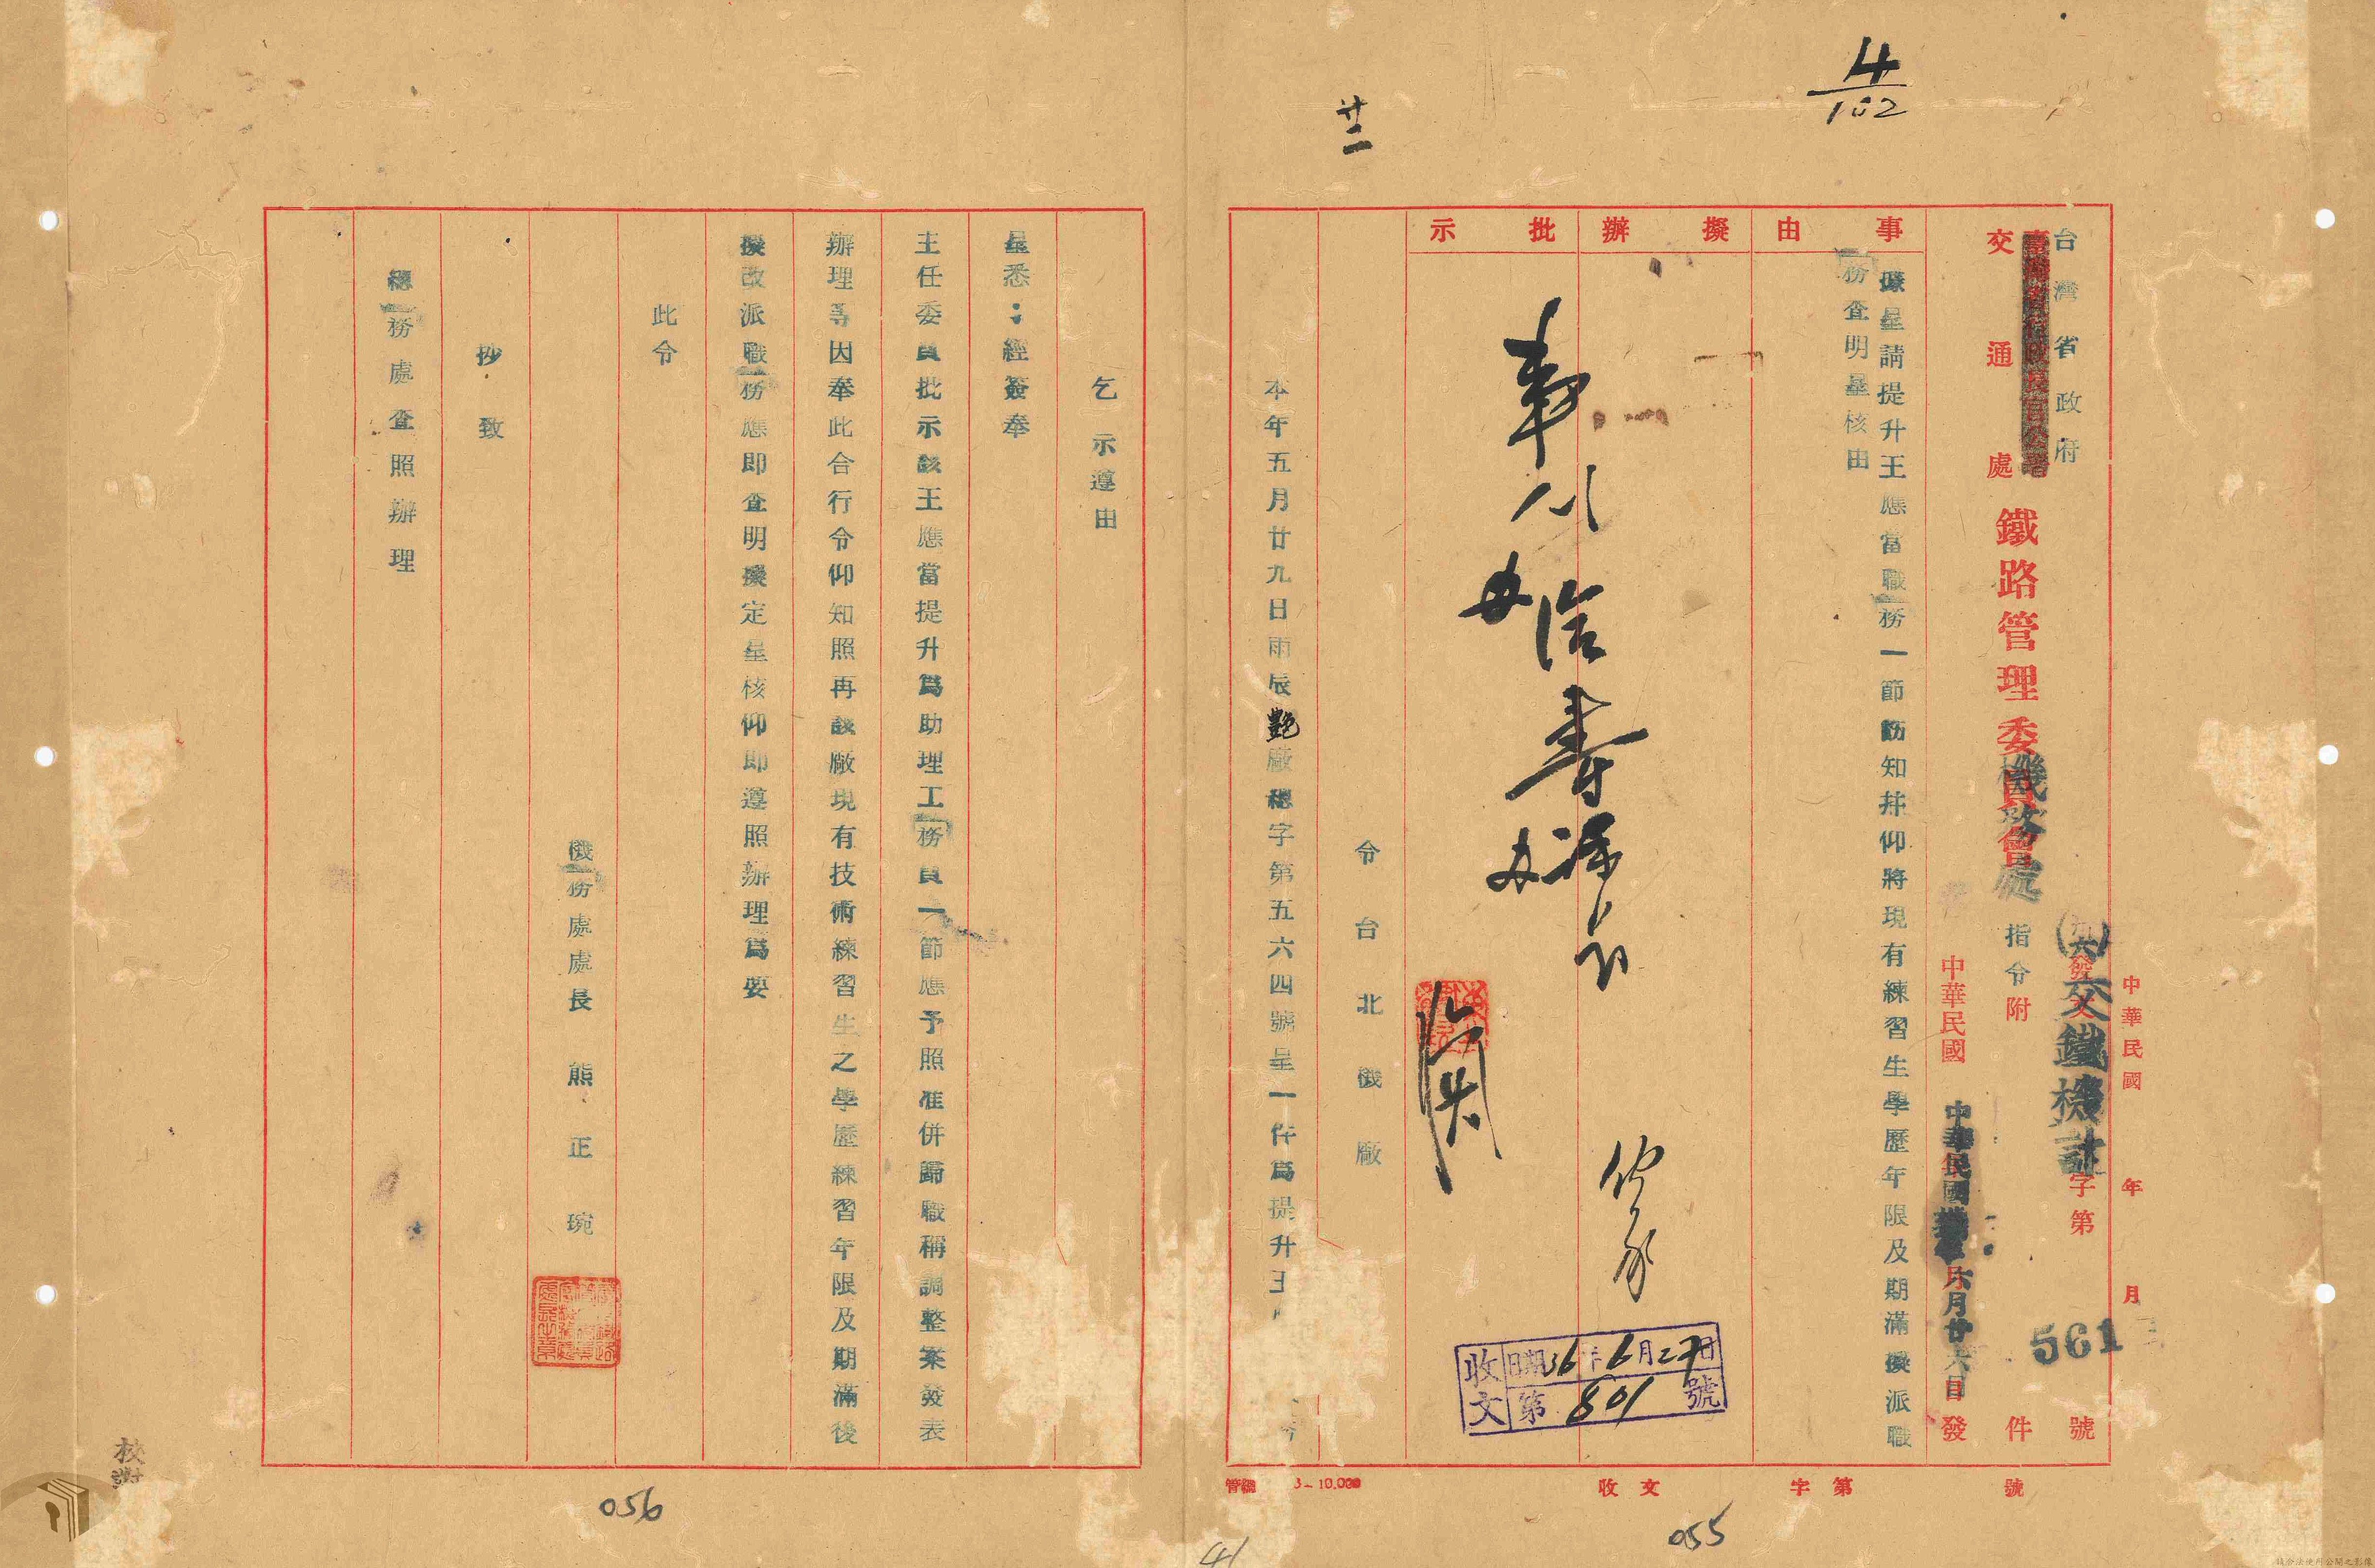 4/102
廿二
台灣省政府
交通處
鐵路管理委員會
機務處
指令 附 件
(卅六)發文交鐵機計字第561號
中華民國 年 月
中華民國
中華民國 六月廿六日發
事由
據呈請提升王應當職務一節飭知并仰將現有練習生學歷年限及期滿擬派職
務查明呈核由
擬辦
批示
收文 日期36年6月27日 第801號
令台北機廠
本年五月廿九日雨辰艷廠總字第五六四號呈一件為提升王
乞示遵由
呈悉：經簽奉
主任委員批示該王應當提升為助理工務員一節應予照准併歸職稱調整案發表
辦理等因奉此合行令仰知照再該廠現有技術練習生之學歷練習年限及期滿後
擬改派職務應即查明擬定呈核仰即遵照辦理為要
此令
機務處處長 熊正琬
抄致
總務處查照辦理
校對
收文 字第 號
10.000
055
056
41